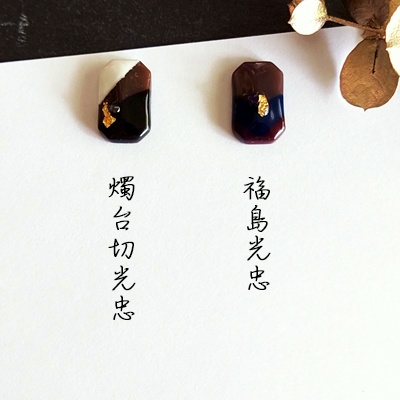 福島光忠
燭台切光忠